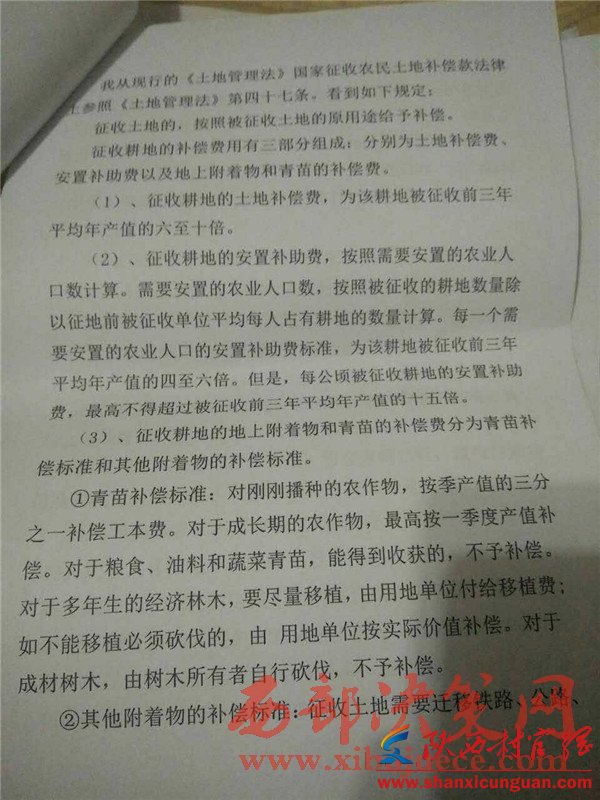 我从现行的《土地管理法》国家征收农民土地补偿款法律
上参照《土地管理法》第四十七条。看到如下规定：
征收土地的，按照被征收土地的原用途给予补偿。
征收耕地的补偿费用有三部分组成：分别为土地补偿费、
安置补助费以及地上附着物和青苗的补偿费。
（1）、征收耕地的土地补偿费，为该耕地被征收前三年
平均年产值的六至十倍。
（2）、征收耕地的安置补助费，按照需要安置的农业人
口数计算。需要安置的农业人口数，按照被征收的耕地数量除
以征地前被征收单位平均每人占有耕地的数量计算。每一个需
要安置的农业人口的安置补助费标准，为该耕地被征收前三年
平均年产值的四至六倍。但是，每公顷被征收耕地的安置补助
费，最高不得超过被征收前三年平均年产值的十五倍。
（3）、征收耕地的地上附着物和青苗的补偿费分为青苗补
偿标准和其他附着物的补偿标准。
①青苗补偿标准：对刚刚播种的农作物，按季产值的三分
之一补偿工本费。对于成长期的农作物，最高按一季度产值补
偿。对于粮食、油料和蔬菜青苗，能得到收获的，不予补偿。
对于多年生的经济林木，要尽量移植，由用地单位付给移植费；
如不能移植必须砍伐的，由 用地单位按实际价值补偿。对于
成材树木，由树木所有者自行砍伐，不予补偿。
②其他附着物的补偿标准：征收土地需要迁移铁路、公路、
西部法制网
www.xibujdece.com
陕西村官网
www.shanxicunguan.com